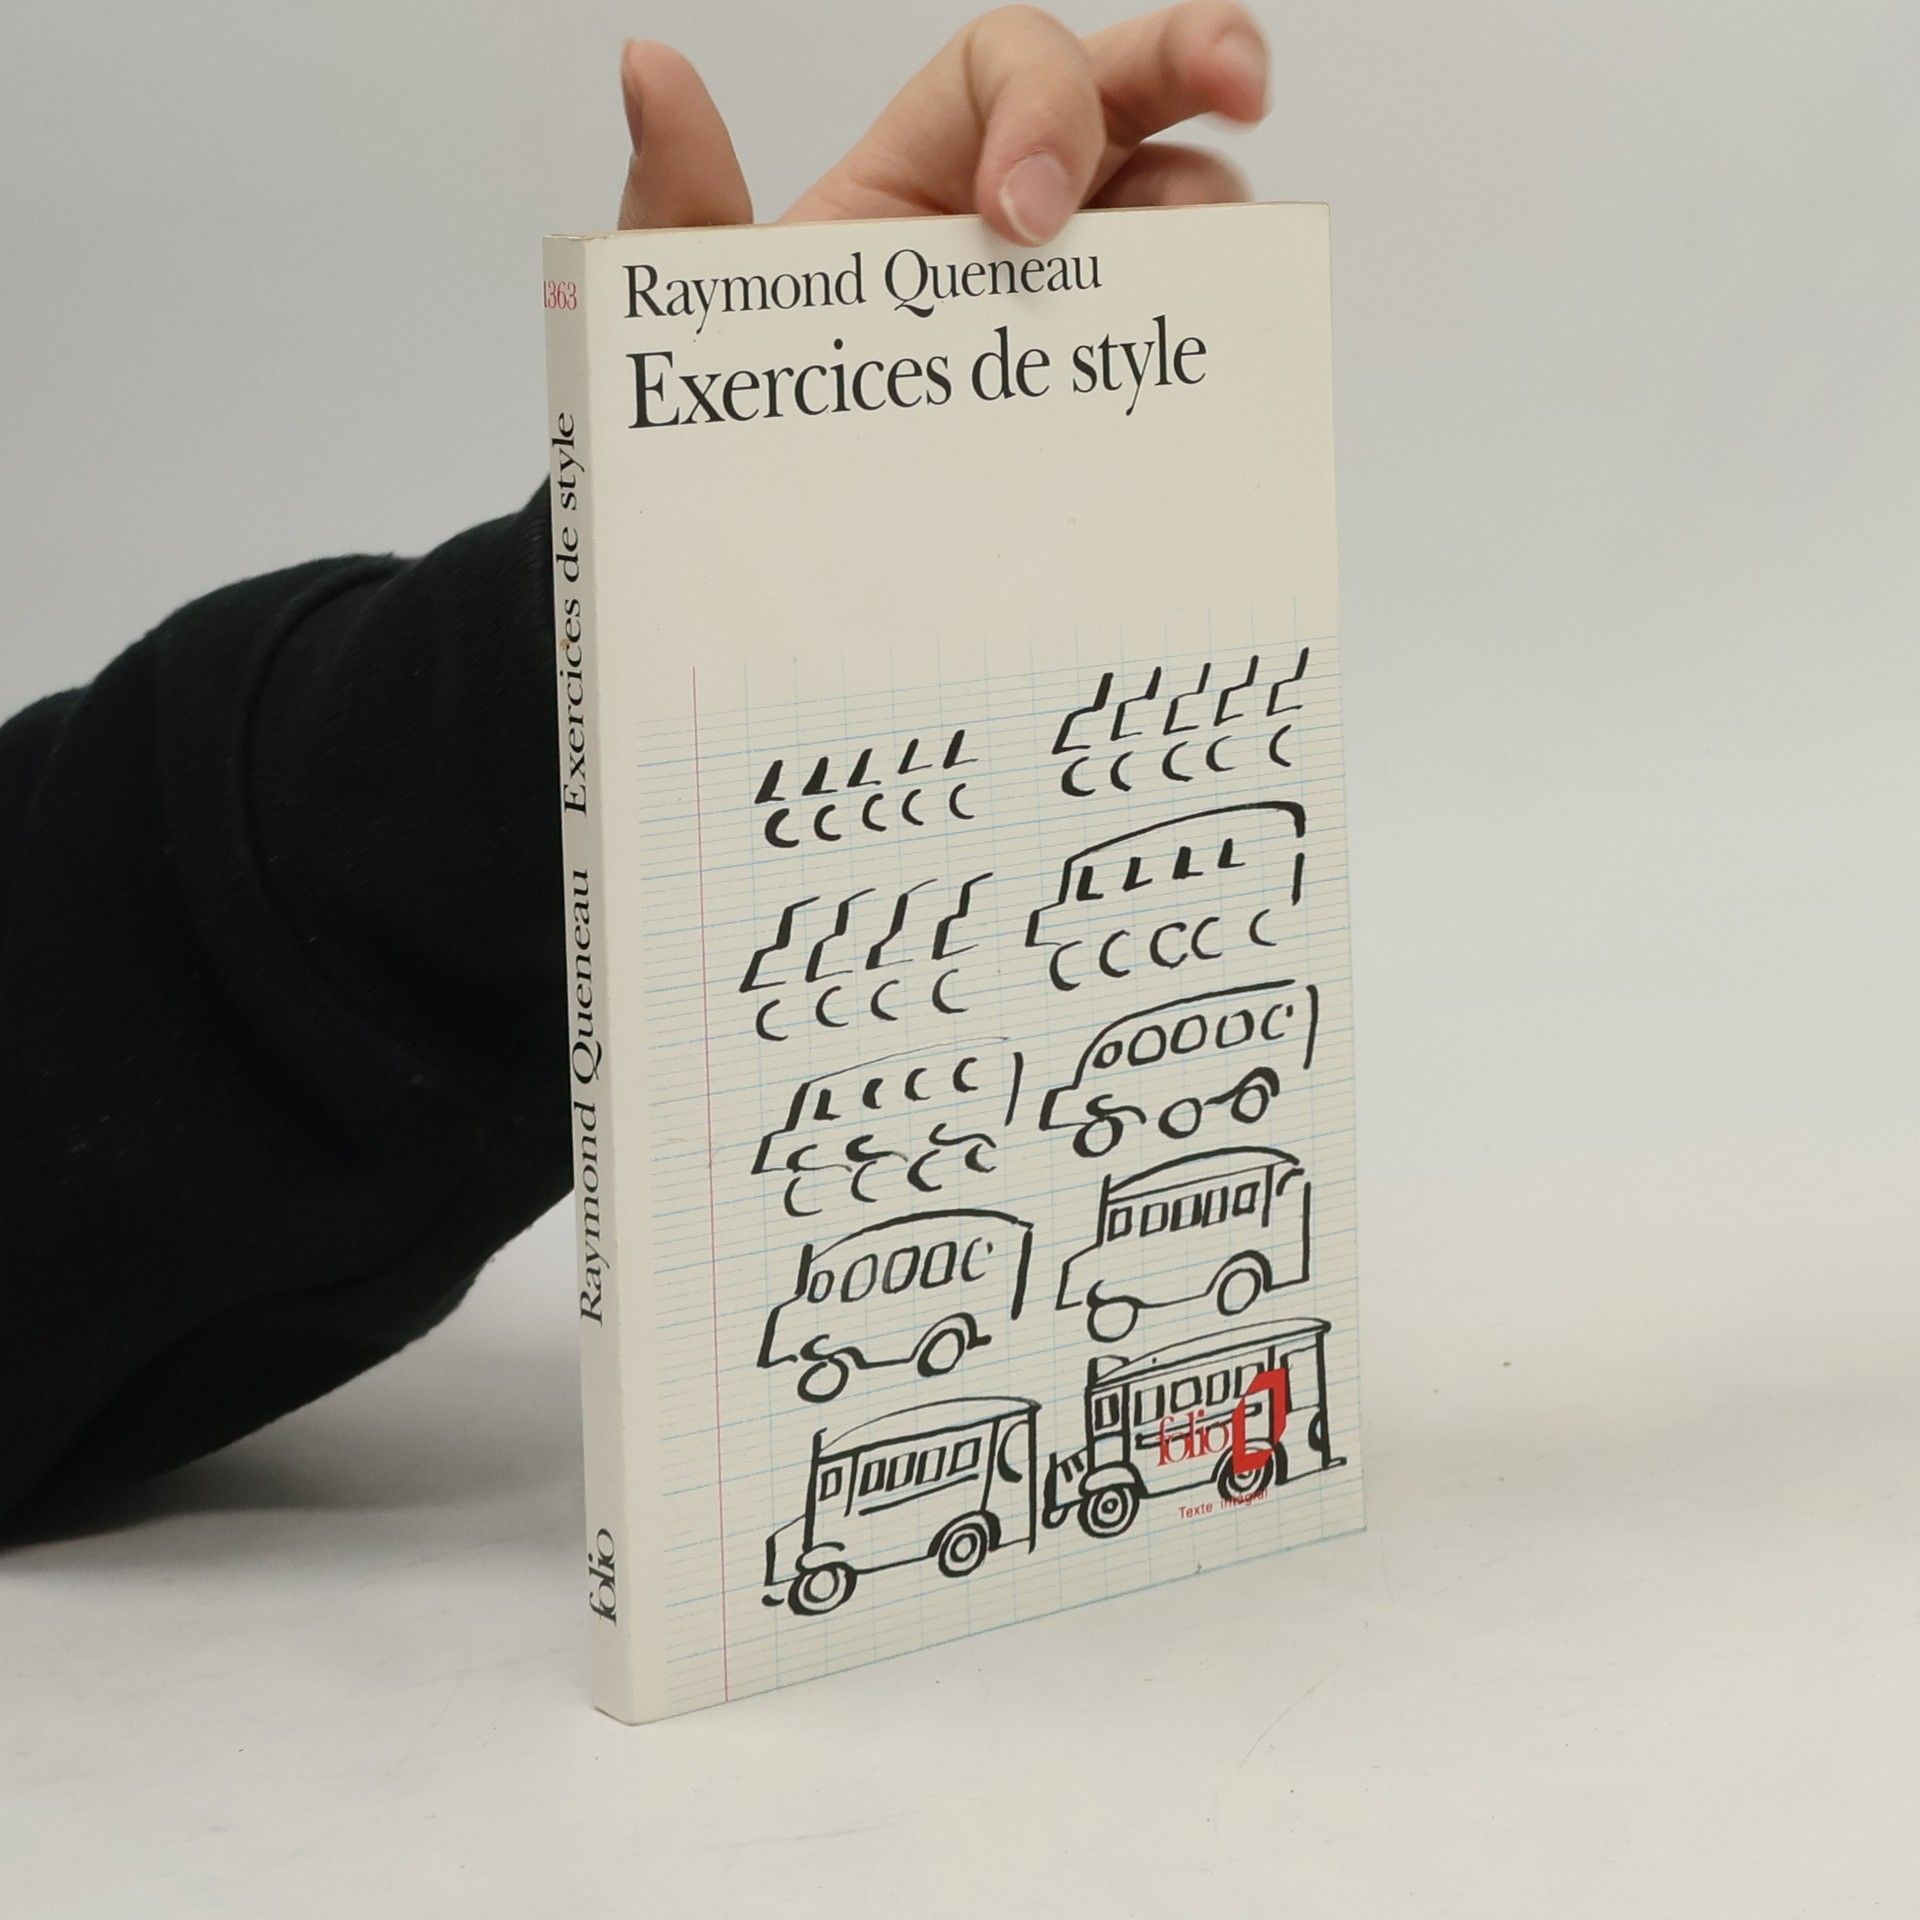 Raymond Queneau
Exercices de style
folio
Texte intégral
1363
Raymond Queneau Exercices de style
folio